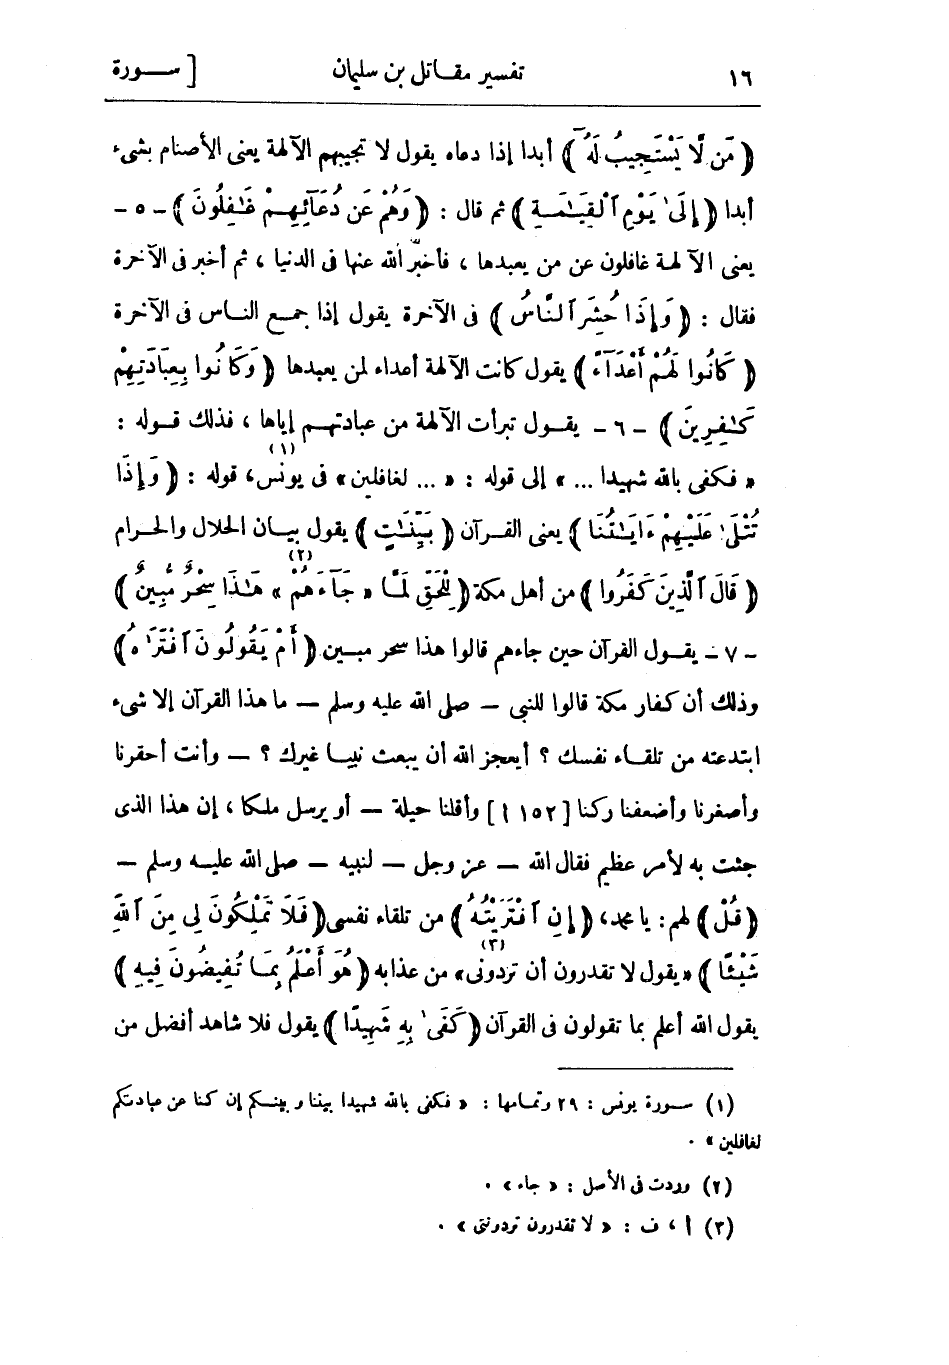 ١٦ تفسير مقاتل بن سليمان [ سورة
( مَن لَّا يَسْتَجِيبُ لَهُ ) أبدا إذا دعاه يقول لا تجيبهم الآلهة يعنى الأصنام بشىء
أبدا ( إِلَىٰ يَوْمِ ٱلْقِيَـٰمَةِ ) ثم قال : ( وَهُمْ عَن دُعَآئِهِمْ غَـٰفِلُونَ ) - ٥ -
يعنى الآلهة غافلون عن من يعبدها ، فأخبر الله عنها فى الدنيا ، ثم أخبر فى الآخرة
فقال : ( وَإِذَا حُشِرَ ٱلنَّاسُ ) فى الآخرة يقول إذا جمع الناس فى الآخرة
( كَانُوا لَهُمْ أَعْدَآءً ) يقول كانت الآلهة أعداء لمن يعبدها ( وَكَانُوا بِعِبَادَتِهِمْ
كَـٰفِرِينَ ) - ٦ - يقول تبرأت الآلهة من عبادتهم إياها ، فذلك قوله :
« فكفى بالله شهيدا ... » إلى قوله : « ... لغافلين » فى يونس(١)، قوله : ( وَإِذَا
تُتْلَىٰ عَلَيْهِمْ ءَايَـٰتُنَا ) يعنى القرآن ( بَيِّنَـٰتٍ ) يقول بيان الحلال والحرام
( قَالَ ٱلَّذِينَ كَفَرُوا ) من أهل مكة ( لِلْحَقِّ لَمَّا « جَآءَهُمْ(٢) » هَـٰذَا سِحْرٌ مُّبِينٌ )
- ٧ - يقول القرآن حين جاءهم قالوا هذا سحر مبين ( أَمْ يَقُولُونَ ٱفْتَرَىٰهُ )
وذلك أن كفار مكة قالوا للنبى - صلى الله عليه وسلم - ما هذا القرآن إلا شىء
ابتدعته من تلقاء نفسك ؟ أيعجز الله أن يبعث نبيا غيرك ؟ - وأنت أحقرنا
وأصغرنا وأضعفنا ركنا [ ١٥٢ أ ] وأقلنا حيلة - أو يرسل ملكا ، إن هذا الذى
جئت به لأمر عظيم فقال الله - عز وجل - لنبيه - صلى الله عليه وسلم -
( قُلْ ) لهم : يا محمد، ( إِنِ ٱفْتَرَيْتُهُ ) من تلقاء نفسى ( فَلَا تَمْلِكُونَ لِى مِنَ ٱللَّهِ
شَيْئًا ) « يقول لا تقدرون أن تردونى(٣) » من عذابه ( هُوَ أَعْلَمُ بِمَا تُفِيضُونَ فِيهِ )
يقول الله أعلم بما تقولون فى القرآن ( كَفَىٰ بِهِ شَهِيدًا ) يقول فلا شاهد أفضل من
(١) سورة يونس : ٢٩ وتمامها : « فكفى بالله شهيدا بيننا وبينكم إن كنا عن عبادتكم
لغافلين » .
(٢) وردت فى الأصل : « جاء » .
(٣) أ ، ف : « لا تقدرون تردونتى » .